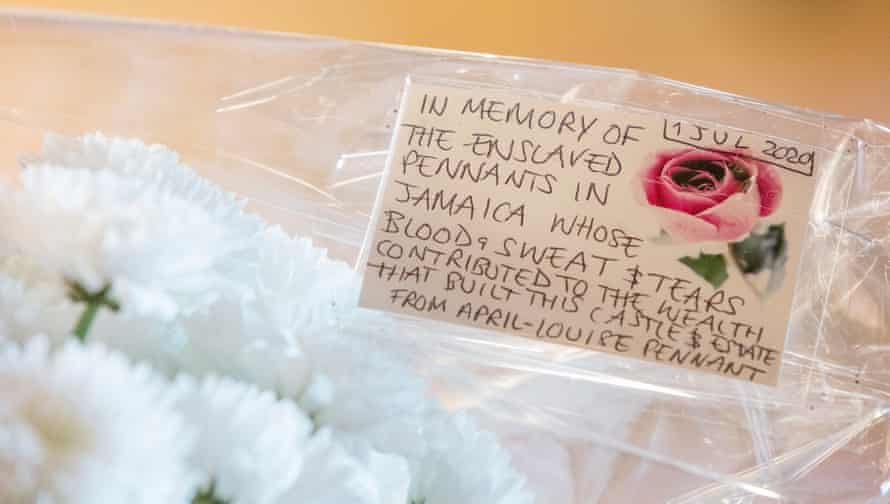 IN MEMORY OF
1 JUL 2020
THE ENSLAVED
PENNANTS IN
JAMAICA WHOSE
BLOOD, SWEAT & TEARS
CONTRIBUTED TO THE WEALTH
THAT BUILT THIS CASTLE & ESTATE
FROM APRIL-LOUISE PENNANT